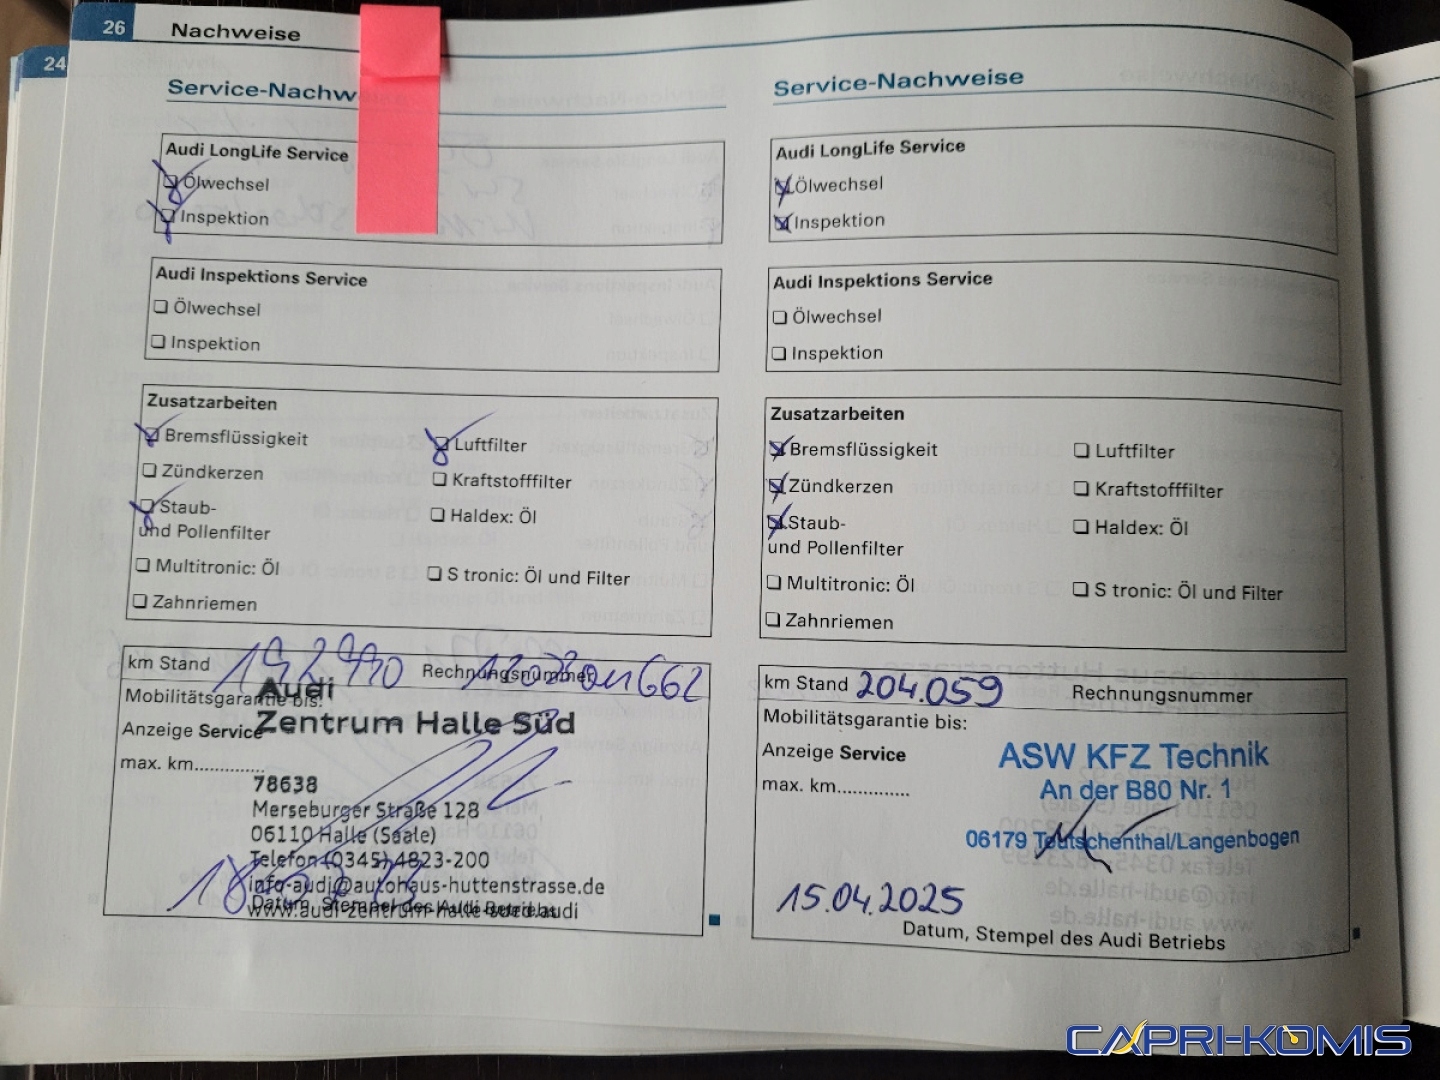 26 Nachweise
24
Service-Nachw
Audi LongLife Service
Ölwechsel
Inspektion
Audi Inspektions Service
Ölwechsel
Inspektion
Zusatzarbeiten
Bremsflüssigkeit
Luftfilter
Zündkerzen
Kraftstofffilter
Staub-
und Pollenfilter
Haldex: Öl
Multitronic: Öl
S tronic: Öl und Filter
Zahnriemen
km Stand
Rechnungsnummer
Mobilitätsgarantie bis:
Anzeige Service
max. km..............
Audi
Zentrum Halle Süd
78638
Merseburger Straße 128
06110 Halle (Saale)
Telefon (0345) 4823-200
info-audi@autohaus-huttenstrasse.de
Datum, Stempel des Audi Betriebs
Service-Nachweise
Audi LongLife Service
Ölwechsel
Inspektion
Audi Inspektions Service
Ölwechsel
Inspektion
Zusatzarbeiten
Bremsflüssigkeit
Luftfilter
Zündkerzen
Kraftstofffilter
Staub-
und Pollenfilter
Haldex: Öl
Multitronic: Öl
S tronic: Öl und Filter
Zahnriemen
km Stand 204.059 Rechnungsnummer
Mobilitätsgarantie bis:
Anzeige Service
max. km..............
ASW KFZ Technik
An der B80 Nr. 1
06179 Teutschenthal/Langenbogen
15.04.2025
Datum, Stempel des Audi Betriebs
CAPRI-KOMIS